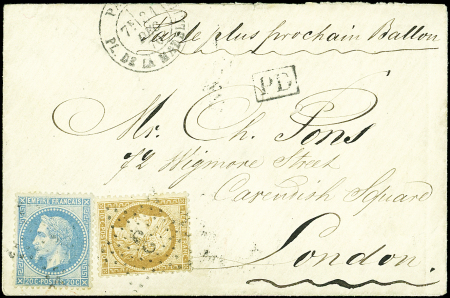 Par le plus prochain Ballon
PL. DE LA MADEL
PD
Mr. Ch. Pons
72 Wigmore Street
Cavendish Square
London.
EMPIRE FRANCAIS
20 C POSTES 20 C